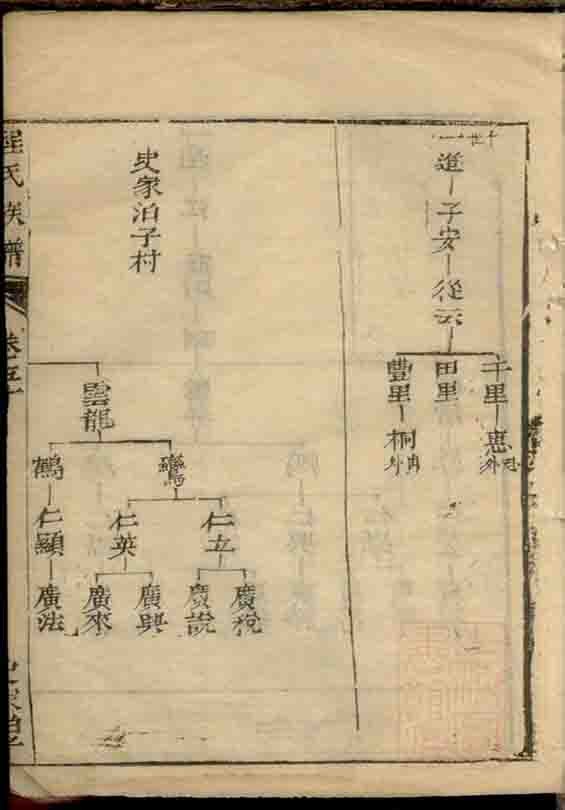 十世
進 子安 從云
千里 惠
田里
豐里 桐
史家泊子村
雲龍
鸞
鶴
仁立
仁英
仁顯
廣稅
廣說
廣興
廣來
廣法
程氏族譜
卷五
史家泊子